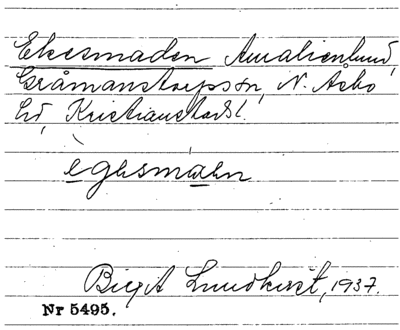 Ekesmaden Amalienlund,
Gråmanstorpssn, N. Åsbo
hd, Kristianstadsl.
ègəsmαən
Birgit Lundkvist, 1937.
Nr 5495.